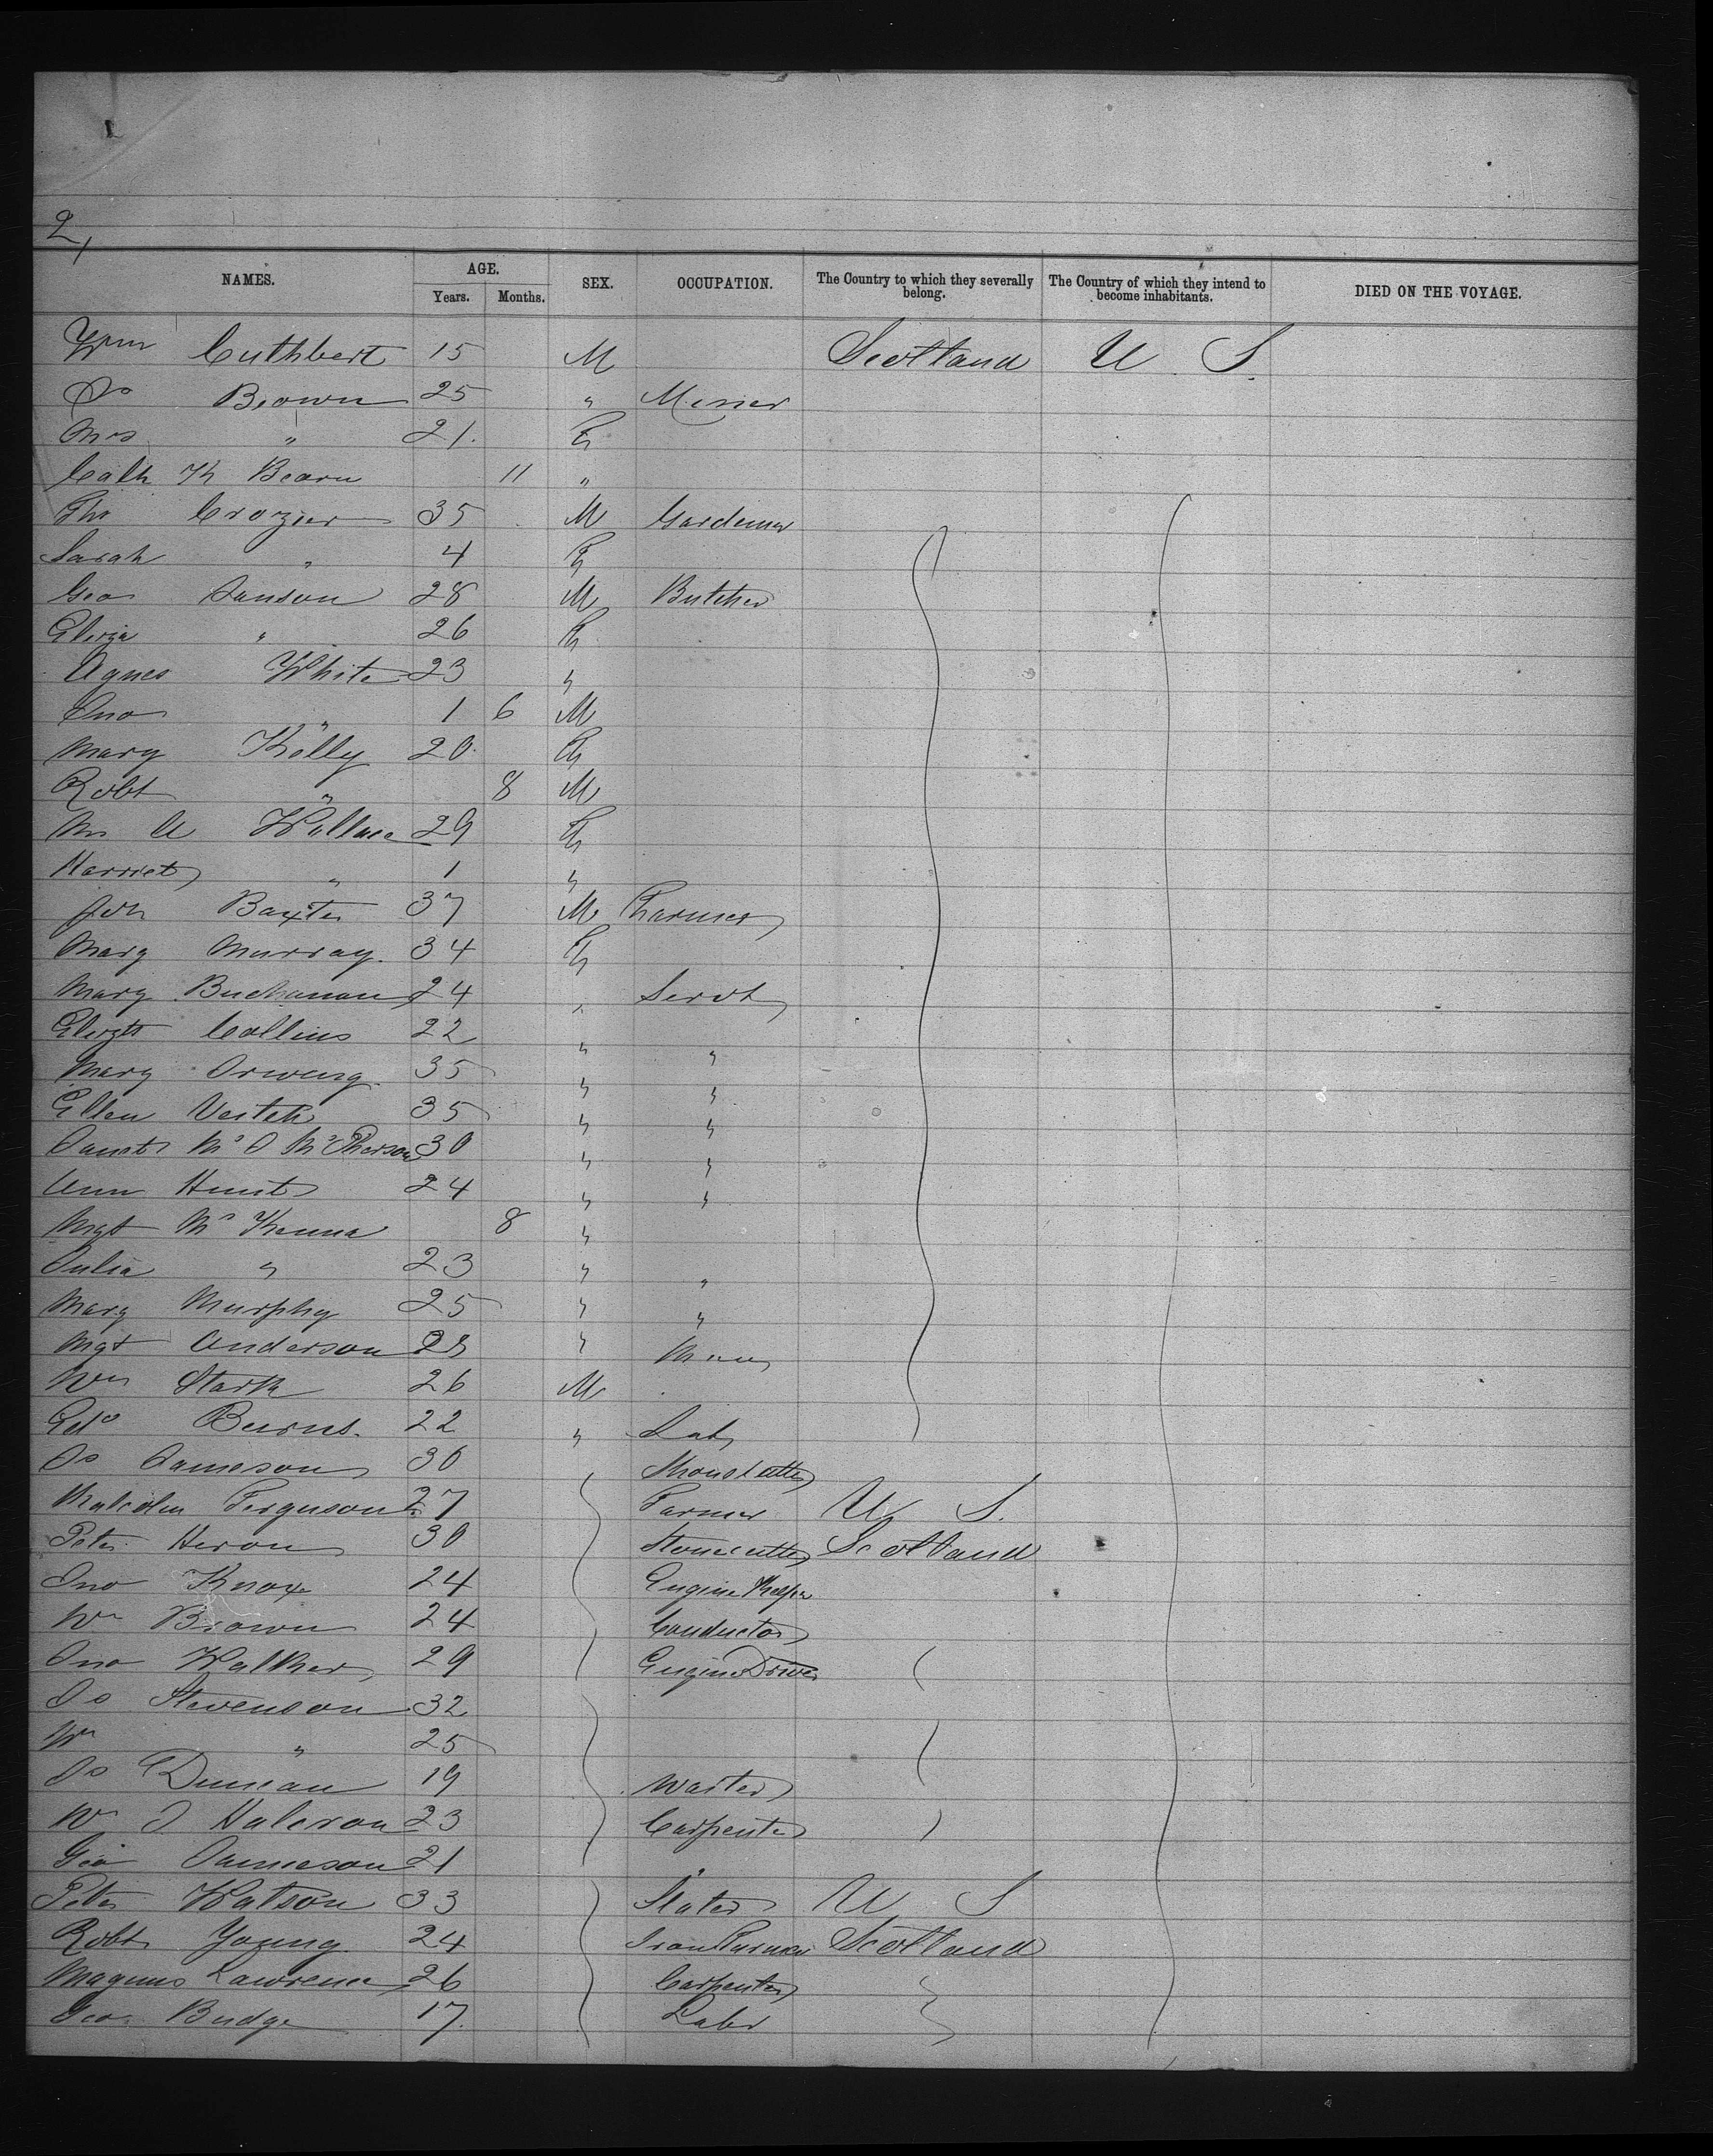 2,
NAMES. AGE. Years. Months. SEX. OCCUPATION. The Country to which they severally belong. The Country of which they intend to become inhabitants. DIED ON THE VOYAGE.
Wm Cuthbert 15 M Scotland U S.
Js Brown 25 " Miner
Mrs " 21. F
Cath K Brown 11 "
Ths Crozier 35 M Gardener
Sarah " 4 F
Geo 28 M Butcher
Eliza " 26 F
Agnes White 23 "
Jno " 1 6 M
Mary Kelly 20 F
Robt " 8 M
Mrs A Wallace 29 F
Harriet " 1 "
Jon Baxter 37 M Farmer
Mary Murray. 34 F
Mary Buchanan 24 " Servt
Elizth Collins 22 " "
Mary 35 " "
Ellen Veitch 35 " "
Janet McPherson 30 " "
Ann Hunt 24 " "
Mgt McKenna 8 "
Julia " 23 " "
Mary Murphy 25 " "
Mgt Anderson 23 "
Wm Stark 26 M
Edd Burns. 22 " Lab
Js Jameson 30
Malcolm Ferguson 27 Farmer U S.
Peter Heron 30 Stonecutter Scotland
Jno Knox 24 Engine Keeper
Wm Brown 24 Conductor
Jno Walker 29 Engine Driver
Js Stevenson 32
Wm " 25
Js Duncan 19 Waiter
Wm J Halcron 23 Carpenter
Geo Jameson 21 "
Peter Watson 33 Slater U S
Robt Young 24 Iron Turner Scotland
Magnus Lawrence 26 Carpenter
Geo. Budge 17. Labr